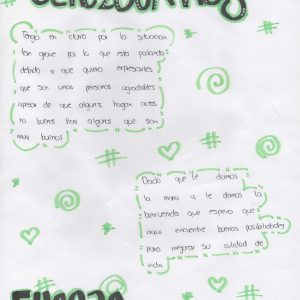 Tengo en claro por la situación
tan grave por lo que esta pasando
debido a que quiero expresarles
que son unas personas agradables
apesar de que algunos hagan actos
no buenos hay algunos que son
muy buenos
Dado que le damos
la mano y le damos la
bienvenida que espero que
aqui encuentre buenas posibilidades
para mejorar su calidad de
vida